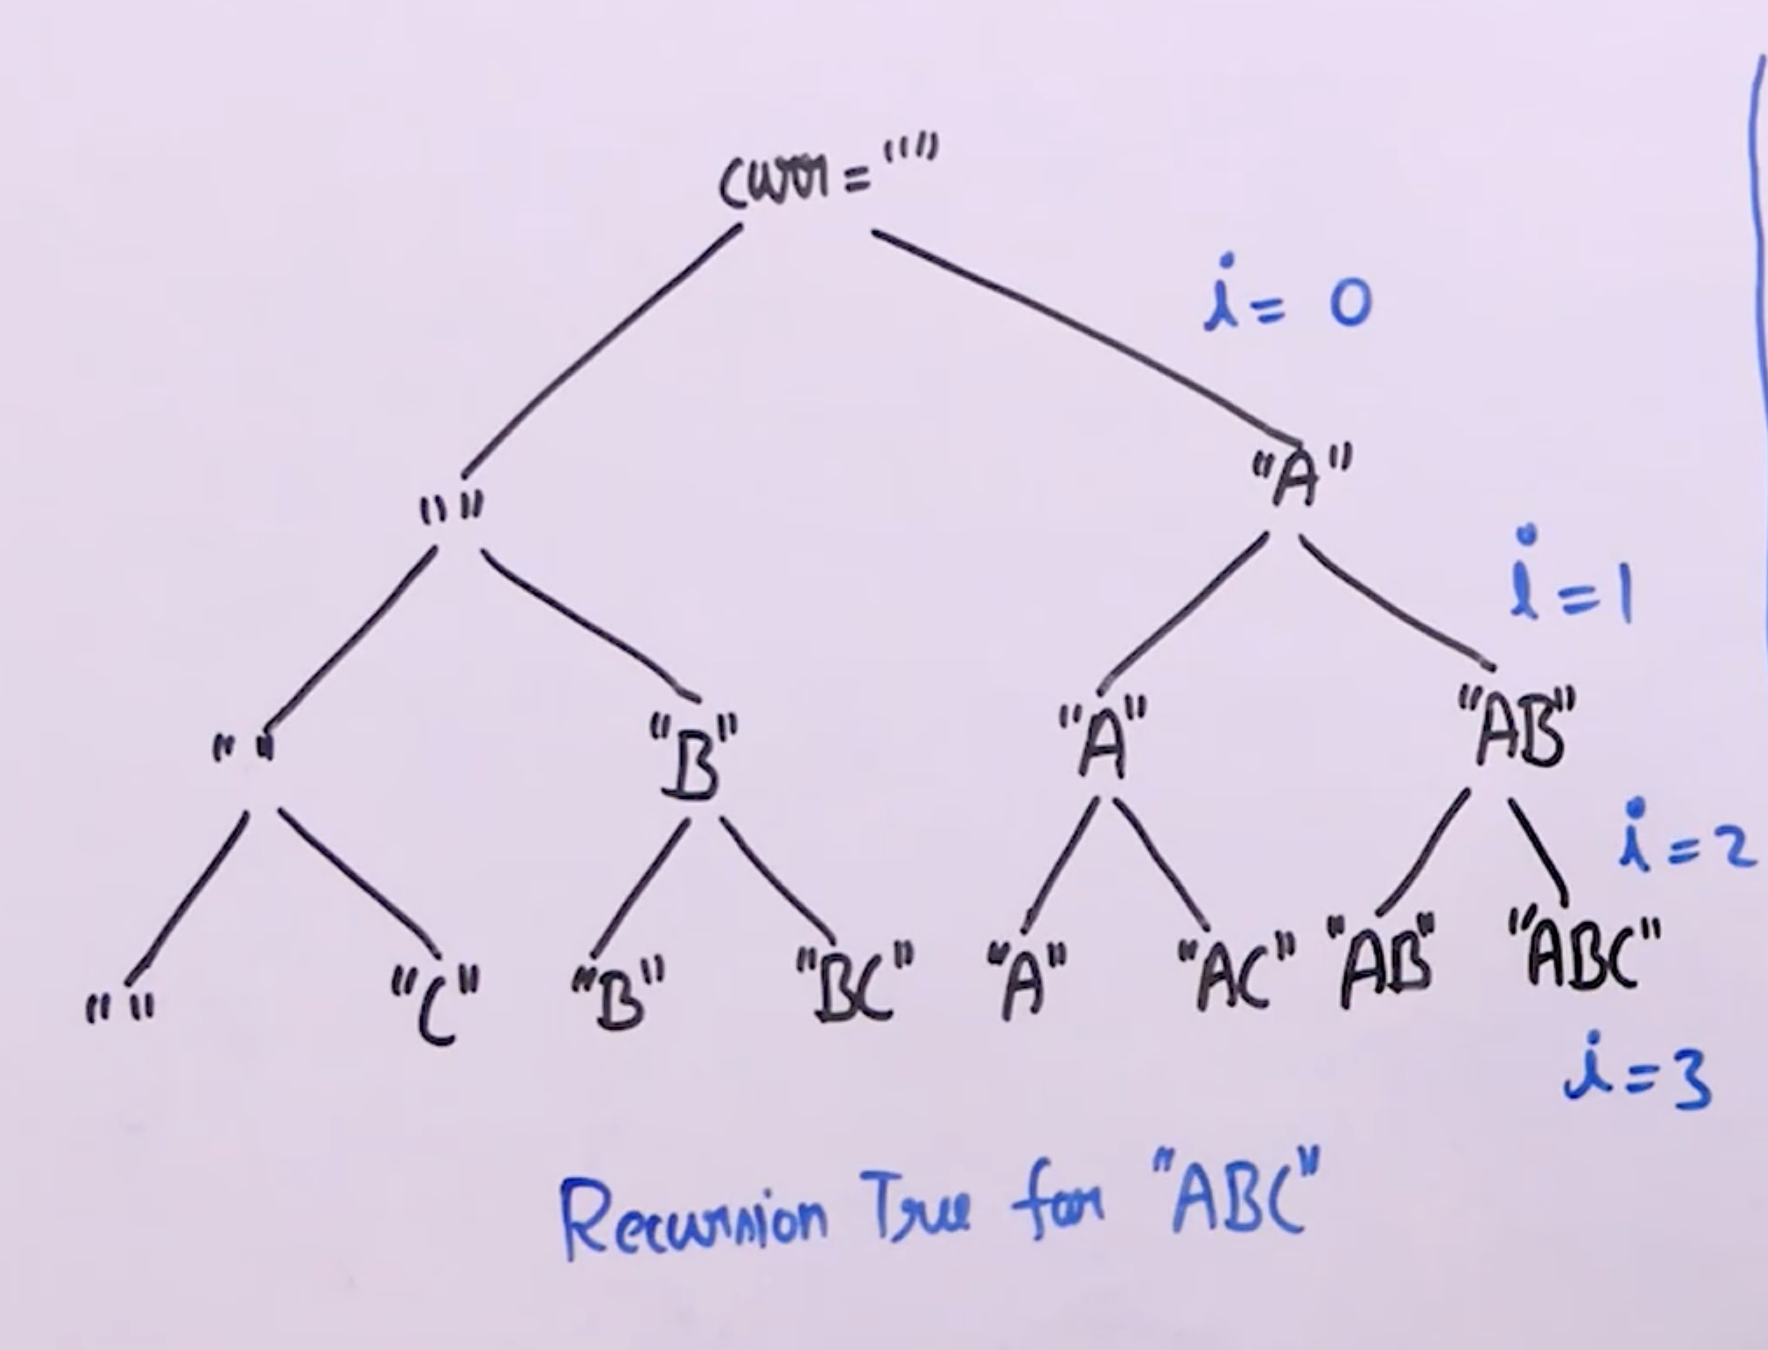 curr = ""
i = 0
"" "A"
i = 1
"" "B" "A" "AB"
i = 2
"" "C" "B" "BC" "A" "AC" "AB" "ABC"
i = 3
Recursion Tree for "ABC"